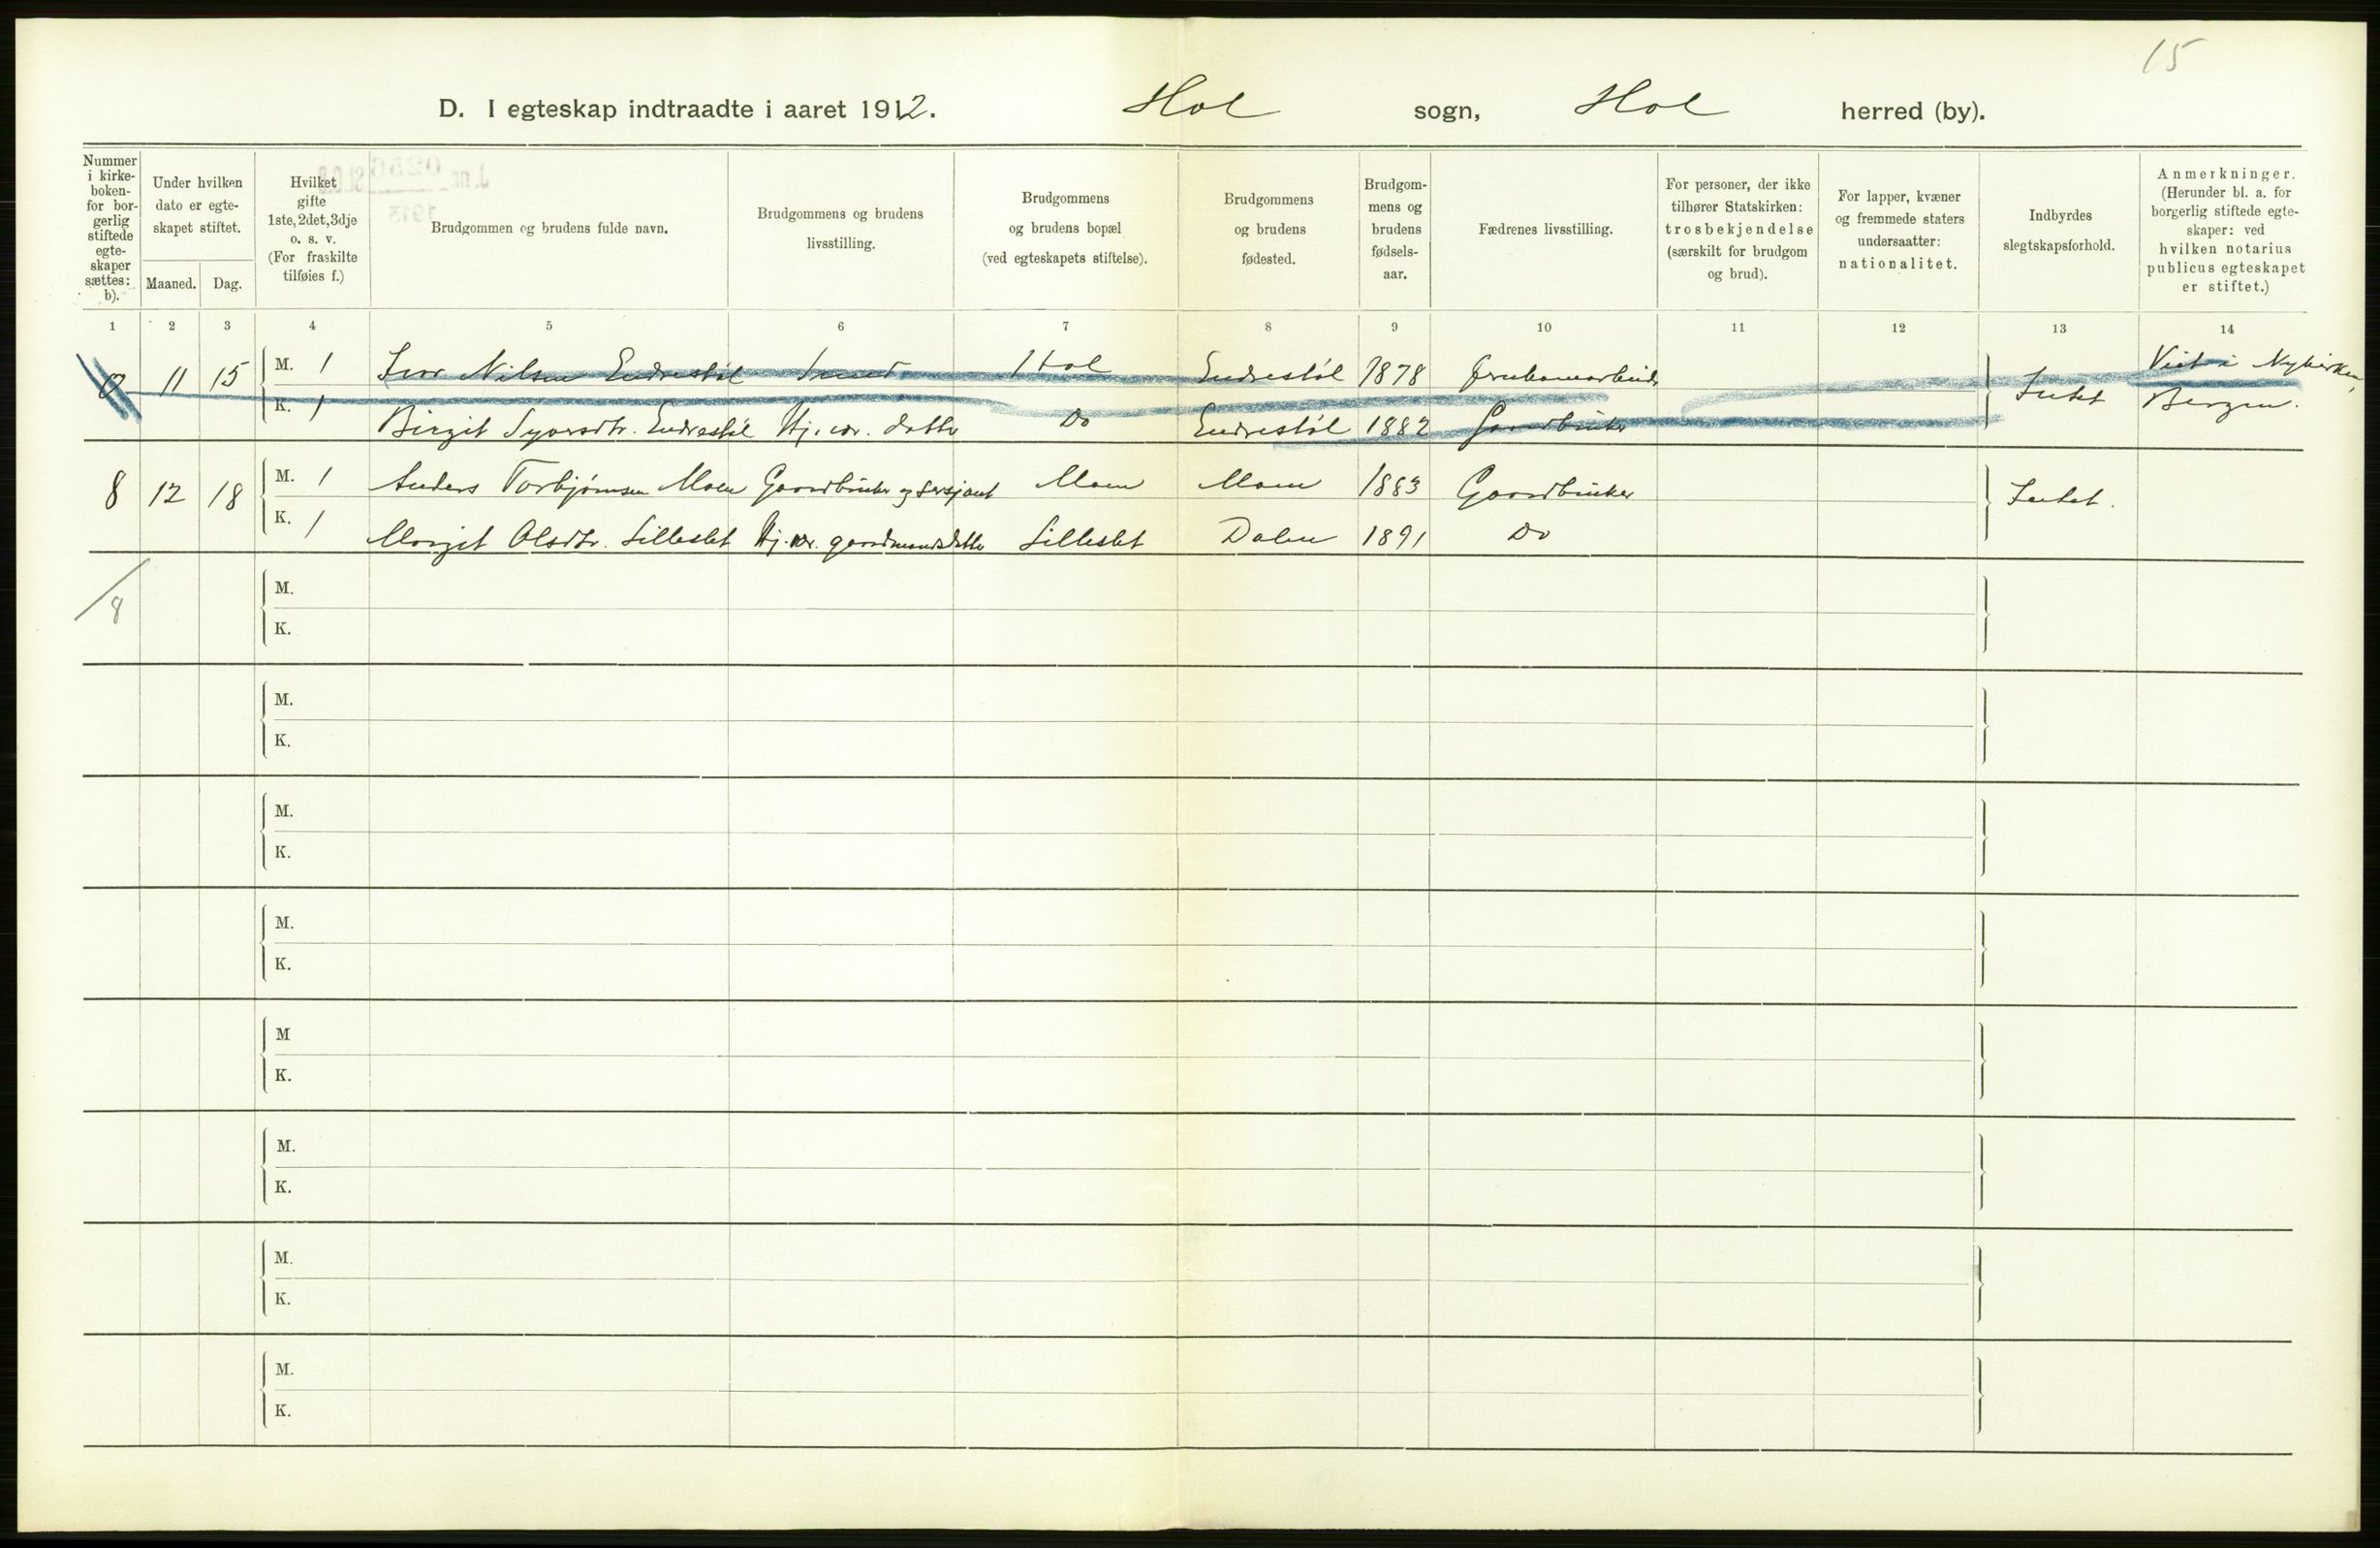 15
D. I egteskap indtraadte i aaret 1912. Hol sogn, Hol herred (by).
Nummer i kirke-boken- for bor-gerlig stiftede egte-skaper sættes: b).
Under hvilken dato er egte-skapet stiftet.
Maaned. Dag.
Hvilket gifte 1ste, 2det, 3dje o. s. v. (For fraskilte tilføies f.)
Brudgommen og brudens fulde navn.
Brudgommens og brudens livsstilling.
Brudgommens og brudens bopæl (ved egteskapets stiftelse).
Brudgommens og brudens fødested.
Brudgom-mens og brudens fødsels-aar.
Fædrenes livsstilling.
For personer, der ikke tilhører Statskirken: trosbekjendelse (særskilt for brudgom og brud).
For lapper, kvæner og fremmede staters undersaatter: nationalitet.
Indbyrdes slegtskapsforhold.
Anmerkninger. (Herunder bl. a. for borgerlig stiftede egte-skaper: ved hvilken notarius publicus egteskapet er stiftet.)
1 2 3 4 5 6 7 8 9 10 11 12 13 14
11 15 M. 1 Ivar Nilsen Endrestøl Smed Hol Endrestøl 1878 Intet Viet i Nykirken, Bergen.
K. 1 Birgit Syversdtr. Endrestøl Hj. vær. datter Do Endrestøl 1882 Gaardbruker
8 12 18 M. 1 Anders Torbjørnsen Moen Gaardbruker og sersjant Moen Moen 1883 Gaardbruker Intet.
K. 1 Margit Olsdtr. Lilleslet Hj. vær. gaardmandsdatter Lilleslet Dalen 1891 Do
8
M.
K.
M.
K.
M.
K.
M.
K.
M
K.
M.
K.
M.
K.
M.
K.